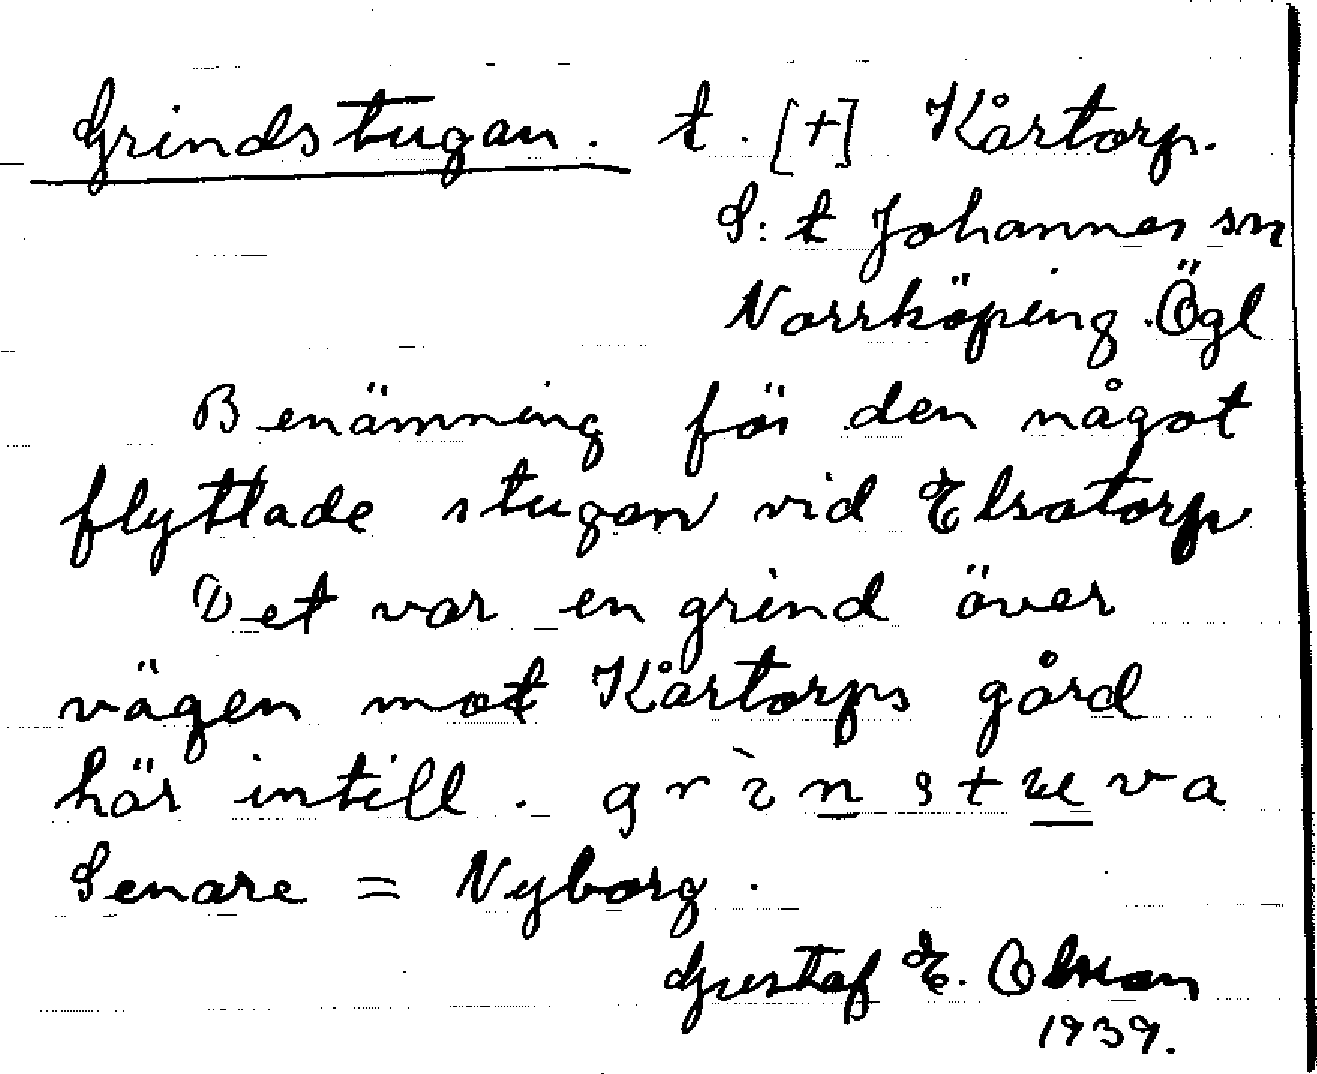 Grindstugan. t. [+] Kårtorp.
S:t Johannes sn
Norrköping. Ögl
Benämning för den något
flyttade stugan vid Elsatorp
Det var en grind över
vägen mot Kårtorps gård
här intill. grìn stuva
Senare = Nyborg.
Gustaf E. Olsson
1939.